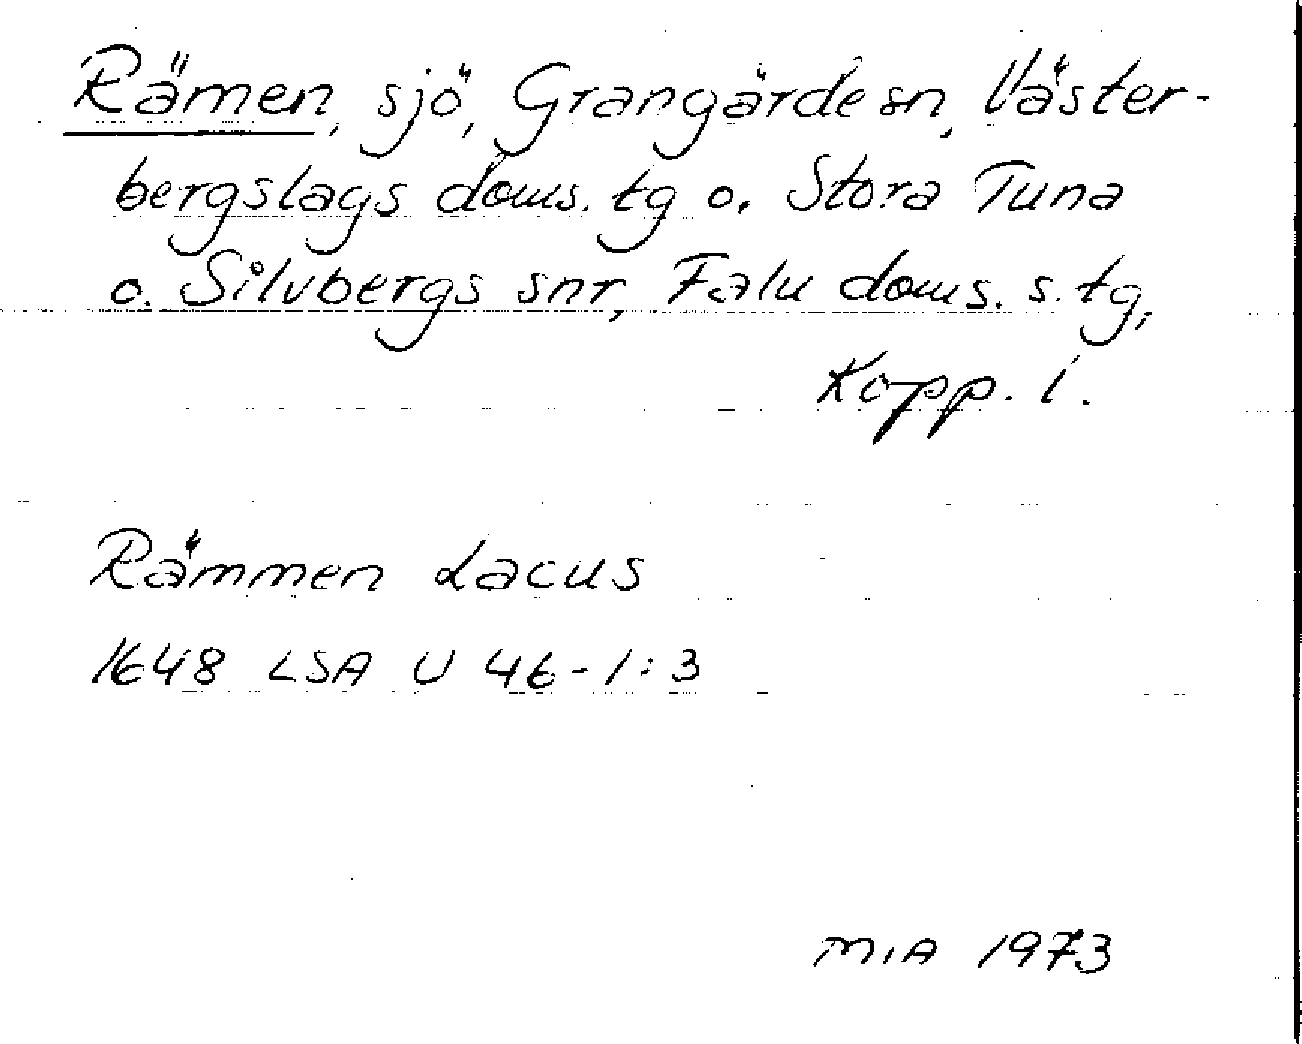 Rämen, sjö, Grangärde sn, Väster-
bergslags doms. tg o. Stora Tuna
o. Silvbergs snr, Falu doms. s. tg,
Kopp. l.
Rämmen Lacus
1648 LSA U 46-1:3
MIA 1973